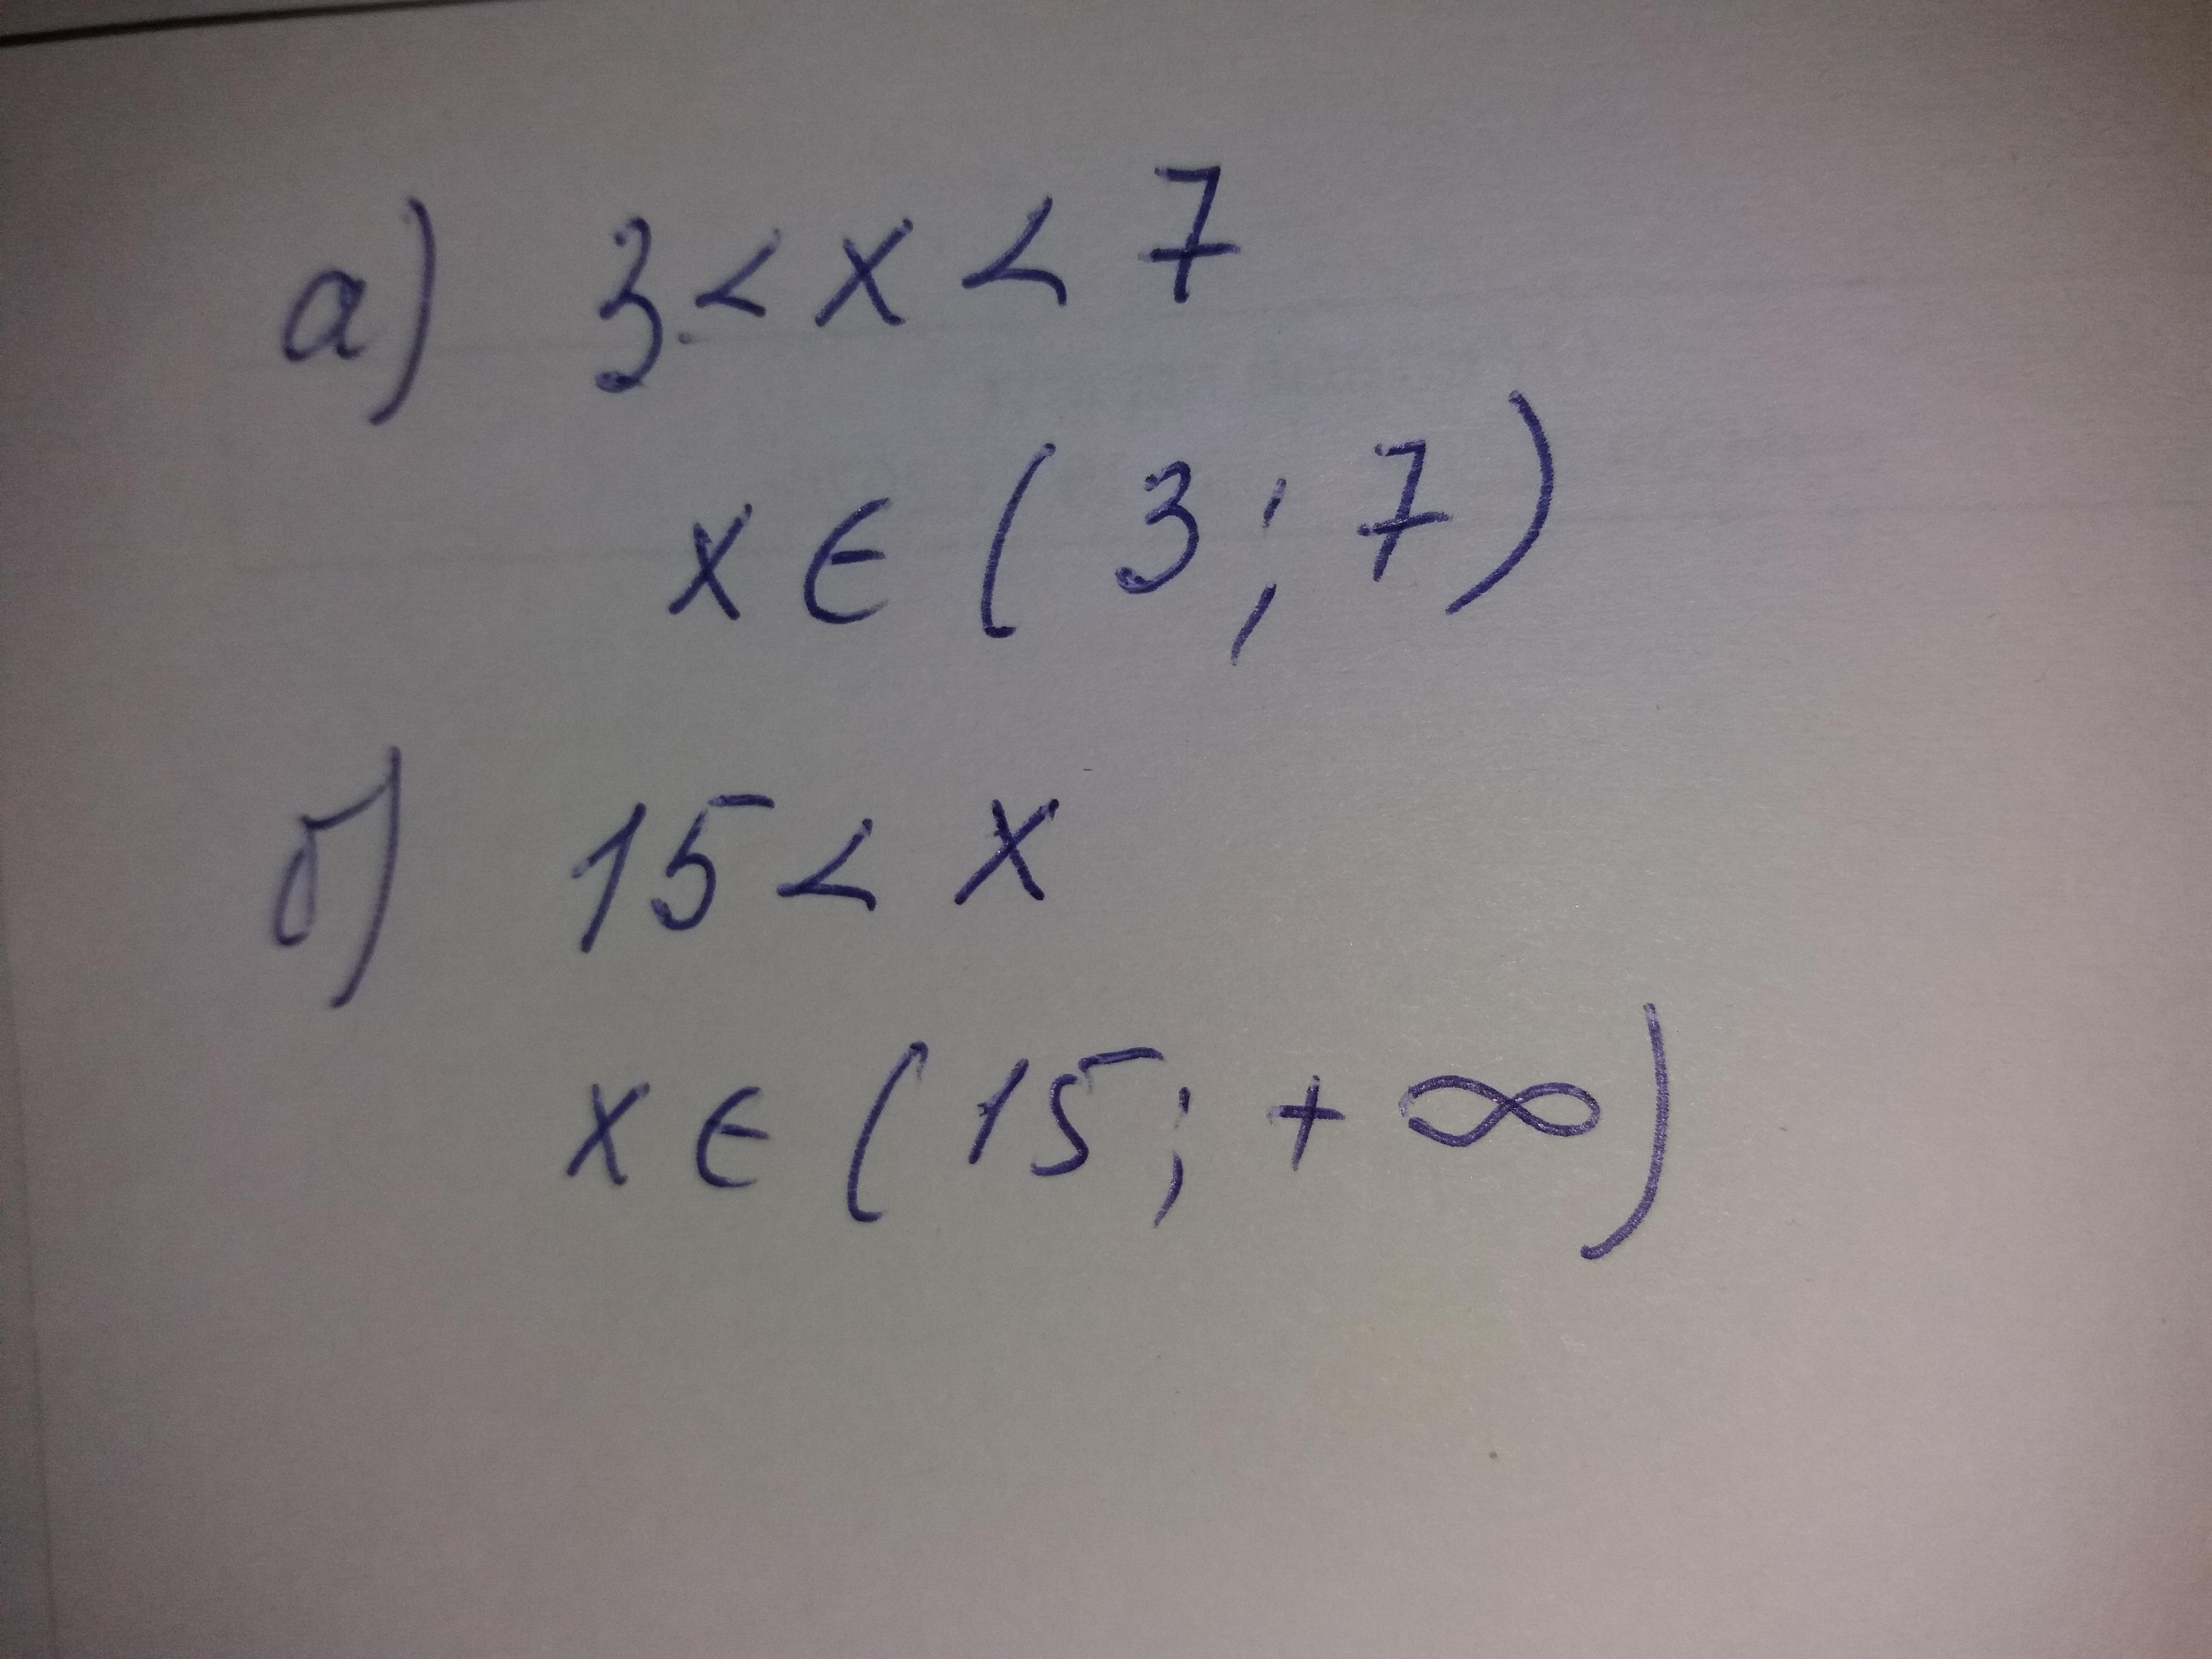 а) 3 < x < 7
x ∈ (3; 7)
б) 15 < x
x ∈ (15; +∞)